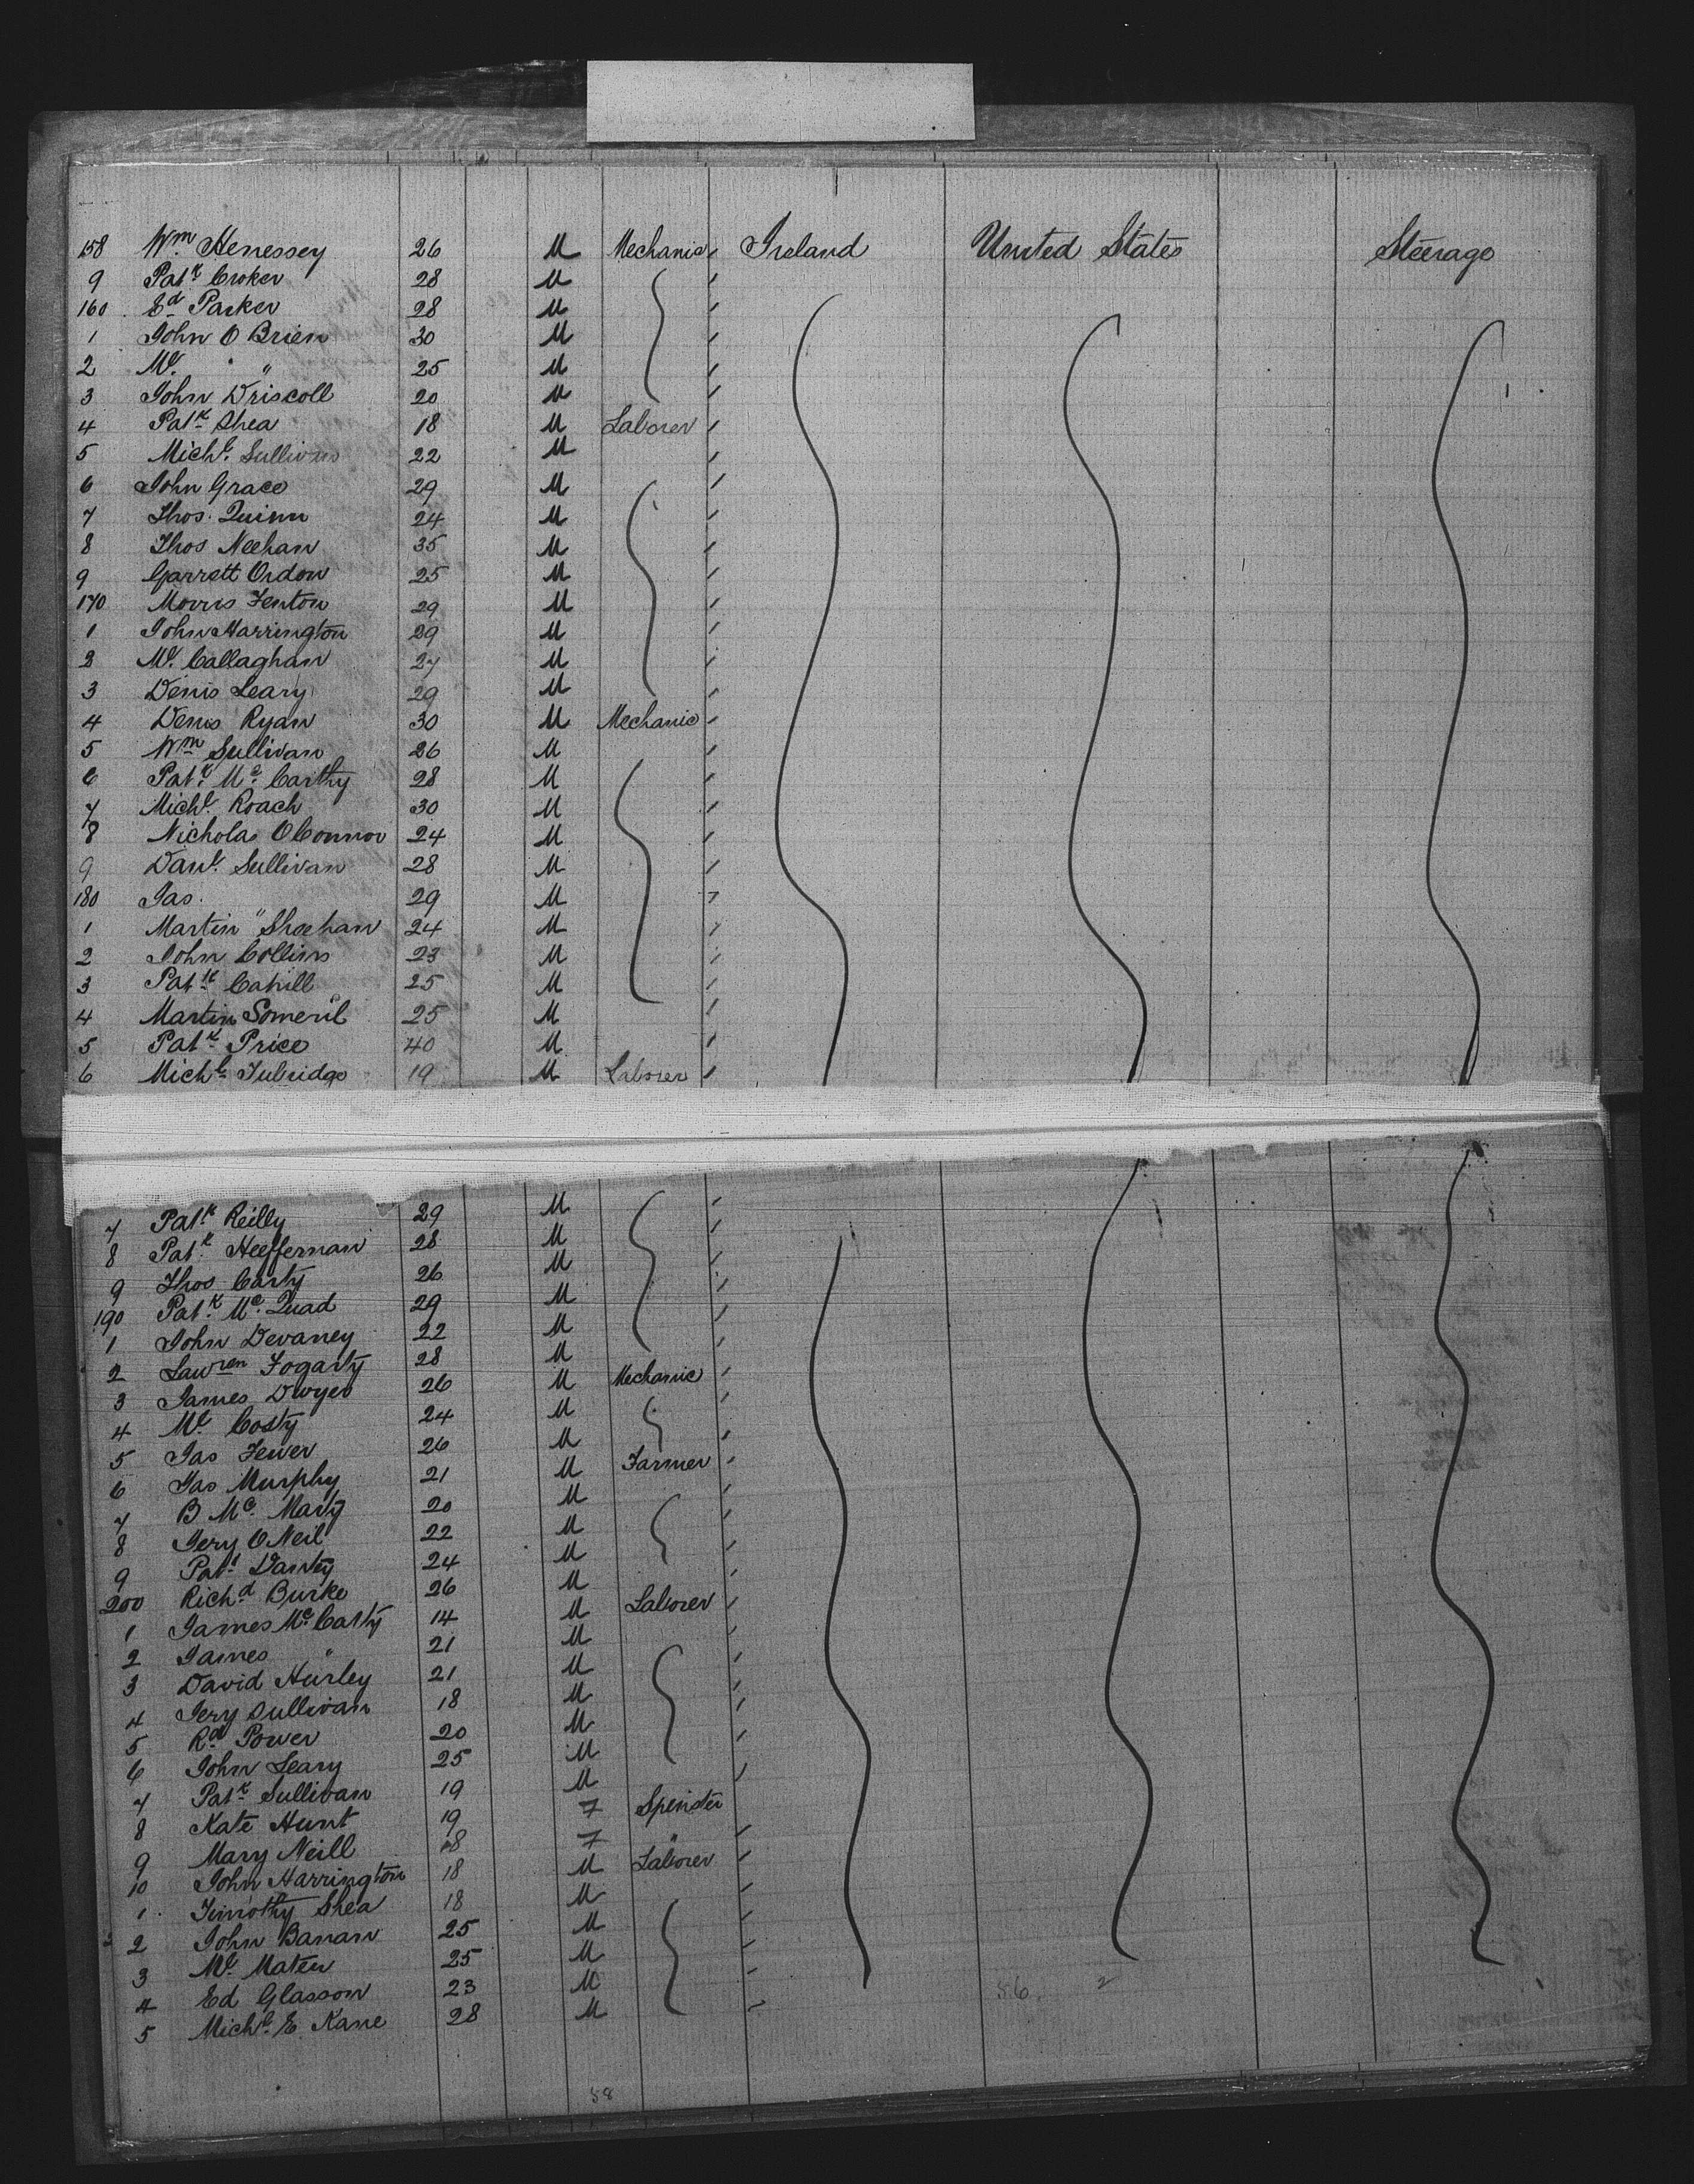 158 Wm Henessey 26 M Mechanic Ireland United States Steerage
9 Patk Croker 28 M
160 Ed Parker 28 M
1 John O Brien 30 M
2 " 25 M
3 John Driscoll 20 M
4 Patk Shea 18 M Laborer
5 Michl Sullivan 22 M
6 John Grace 29 M
7 Thos. Quinn 24 M
8 Thos Neehan 35 M
9 Garrett Ordon 25 M
170 Morris Fenton 29 M
1 John Harrington 29 M
2 Callaghan 27 M
3 Denis Leary 29 M
4 Denis Ryan 30 M Mechanic
5 Wm Sullivan 26 M
6 Patk Mc Carthy 28 M
7 Michl Roach 30 M
8 Nicholas OConnor 24 M
9 Danl Sullivan 28 M
180 Jas. " 29 M
1 Martin Sheehan 24 M
2 John Collins 23 M
3 Patk Cahill 25 M
4 Martin 25 M
5 Patk Price 40 M
6 Michl Tubridge 19 M Laborer
7 Patk Reilly 29 M
8 Patk Heeffernan 28 M
9 Thos Carty 26 M
190 Patk Mc Quad 29 M
1 John Devaney 22 M
2 Lawren Fogarty 28 M
3 James Dwyer 26 M Mechanic
4 Costy 24 M
5 Jas Fewer 26 M
6 Jas Murphy 21 M Farmer
7 B Mc 20 M
8 Jery O Neil 22 M
9 Patk 24 M
200 Richd Burke 26 M
1 James Mc Carty 14 M Laborer
2 James " 21 M
3 David Hurley 21 M
4 Jery Sullivan 18 M
5 Rd Power 20 M
6 John Leary 25 M
7 Patk Sullivan 19 M
8 Kate Hunt 19 F Spinster
9 Mary Neill 18 F "
10 John Harrington 18 M Laborer
1 Timothy Shea 18 M
2 John Banan 25 M
3 25 M
4 Ed Glasson 23 M
5 Michl E Kane 28 M
86. 2
58